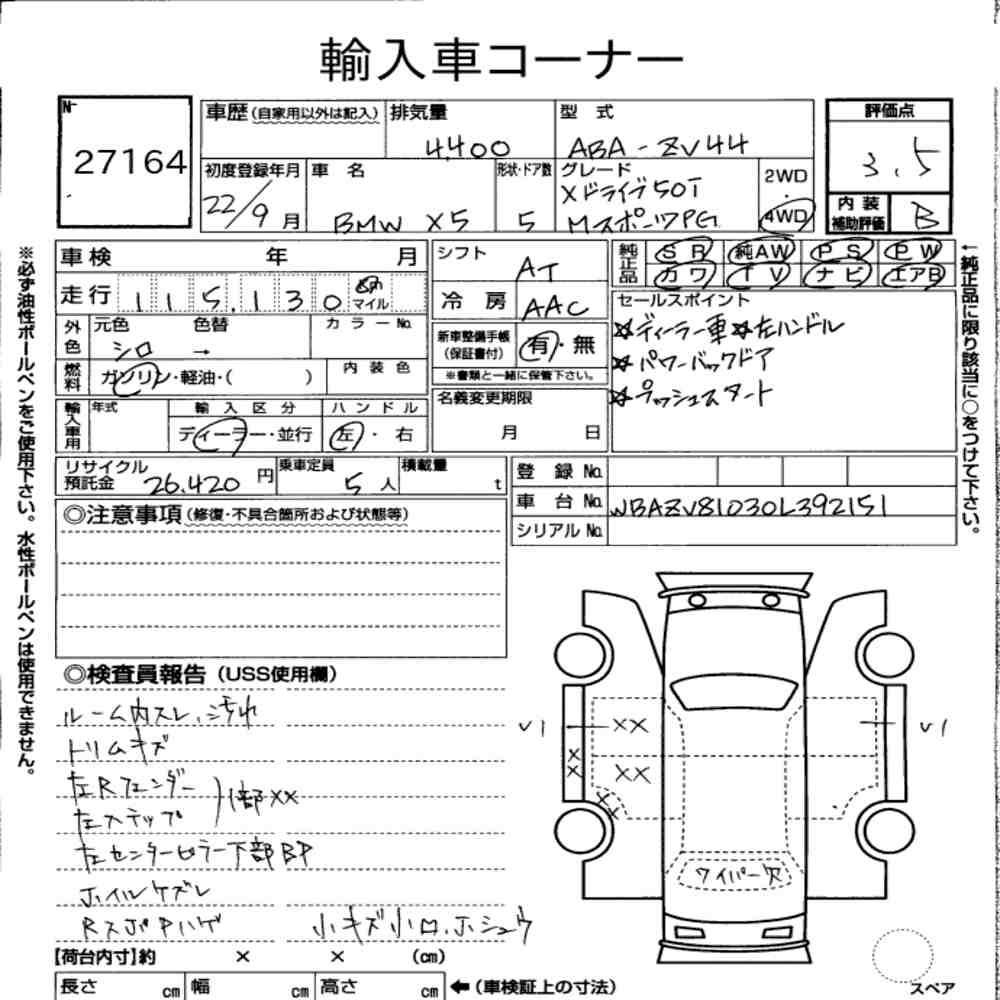 輸入車コーナー
N-
27164
車歴(自家用以外は記入)
排気量
4,400
型 式
ABA-ZV44
評価点
3.5
初度登録年月
22/9月
車 名
BMW X5
形状・ドア数
5
グレード
Xドライブ50i
MスポーツPG
2WD
・
4WD
内 装
補助評価
B
車検 年 月
走行 115,130 km
マイル
シフト
AT
冷 房
AAC
純正品
SR 純AW PS PW
カワ TV ナビ エアB
外色
元色 色替 カラーNo.
シロ →
燃料
ガソリン・軽油・( )
内 装 色
新車整備手帳
(保証書付)
有・無
※書類と一緒に保管下さい。
セールスポイント
☆ディーラー車☆左ハンドル
☆パワーバックドア
☆プッシュスタート
輸入車用
年式
輸 入 区 分
ディーラー・並行
ハ ン ド ル
左・右
名義変更期限
月 日
リサイクル
預託金 26,420 円
乗車定員
5人
積載量
t
登 録 No.
車 台 No. WBAZV81030L392151
シリアル No.
◎注意事項(修復・不具合箇所および状態等)
◎検査員報告(USS使用欄)
ルーム内スレ、汚れ
トリムキズ
左Rフェンダー
左ステップ
)1部XX
左センターピラー下部BP
ホイルケズレ
RスポPハゲ
小キズ小凹、ホシュウ
V1
XX
XX
XX
XX
V1
ワイパー欠
【荷台内寸】約 × × (cm)
長さ cm 幅 cm 高さ cm
←(車検証上の寸法)
スペア
※必ず油性ボールペンをご使用下さい。水性ボールペンは使用できません。
←純正品に限り該当に○をつけて下さい。